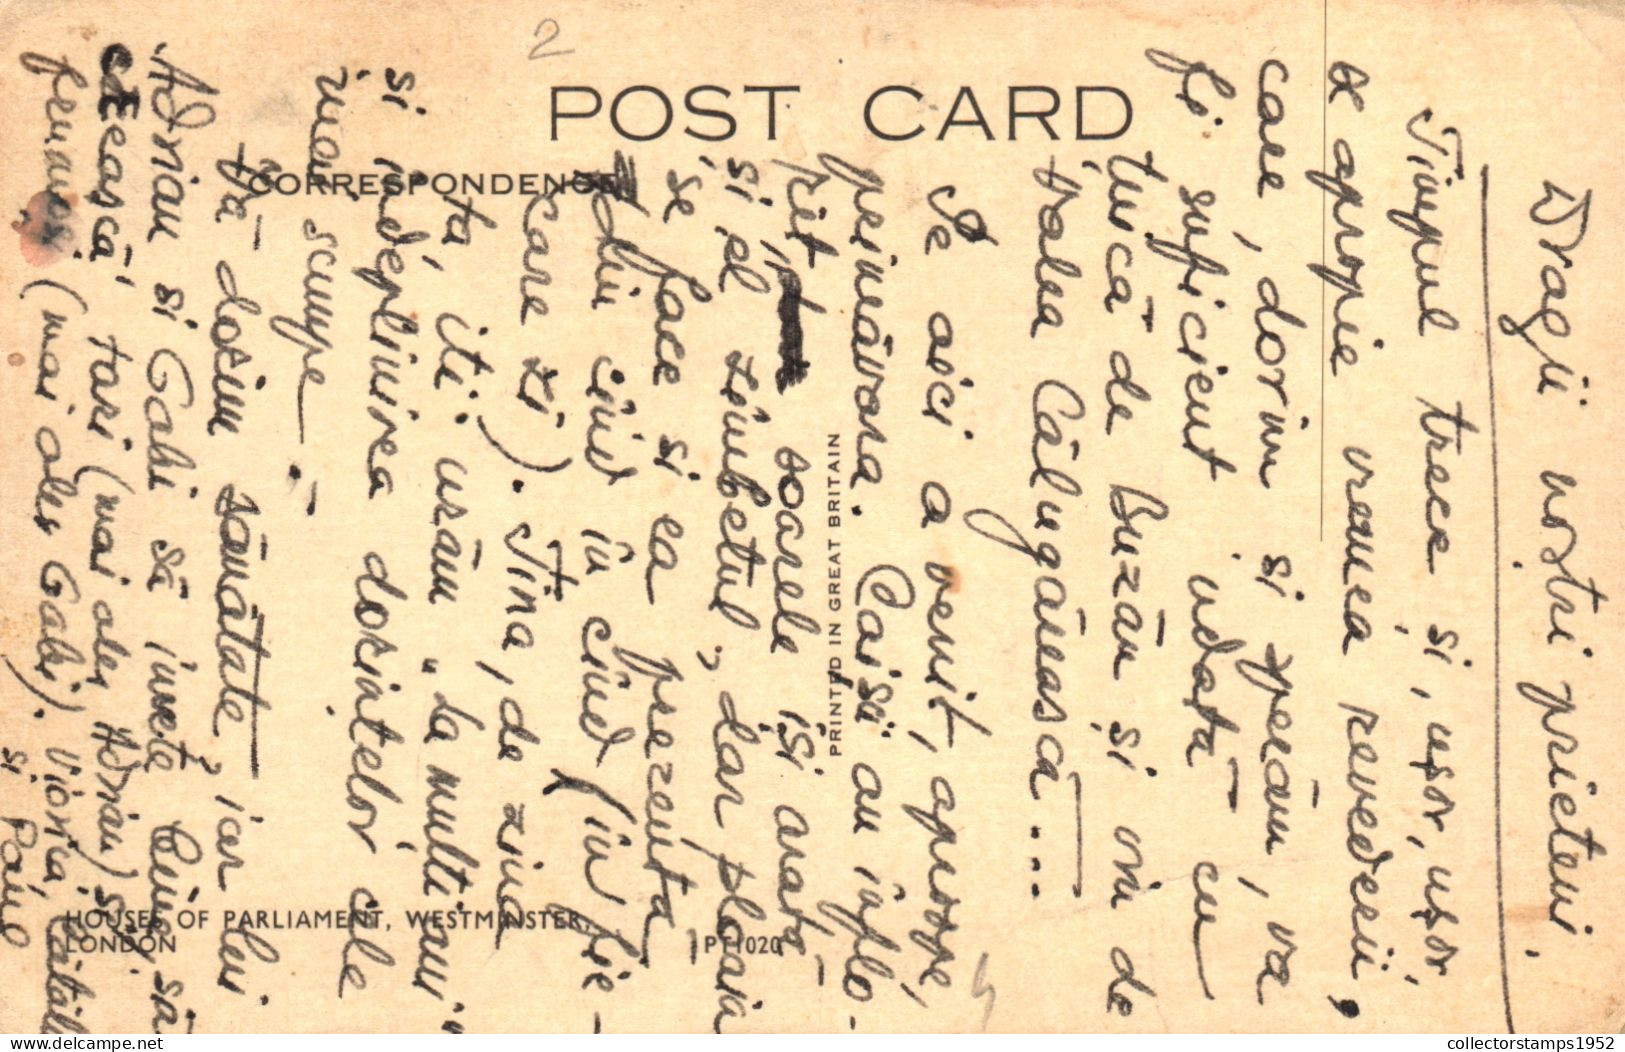 2
POST CARD
CORRESPONDENCE
PRINTED IN GREAT BRITAIN
HOUSES OF PARLIAMENT, WESTMINSTER,
LONDON
PT1020
Dragii noștri prieteni,
Timpul trece și, ușor, ușor,
se apropie vremea revederii,
care, dorim și sperăm, va
fi suficient udată cu
țuică de Buzău și vin de
Valea Călugărească...
Pe aici a venit, aproape,
primăvara. Caișii au înflo-
rit, soarele își arată
și el zîmbetul, dar ploaia
se face și ea prezenta
din cînd în cînd (în fie-
care zi). Tina, de ziua
ta, iți urăm „La mulți ani"
și indeplinirea dorințelor cele
mai scumpe.-
Vă dorim sănătate, iar lui
Adrian și Gabi să invețe bine, să
crească tari (mai ales Adrian) și
frumoși (mai ales Gabi). Viorica, Cătăl
și Paul
collectorstamps1952